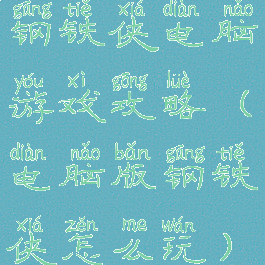 gāng tiě xiá diàn nǎo
钢铁侠电脑
yóu xì gōng lüè
游戏攻略（
diàn nǎo bǎn gāng tiě
电脑版钢铁
xiá zěn me wán
侠怎么玩）